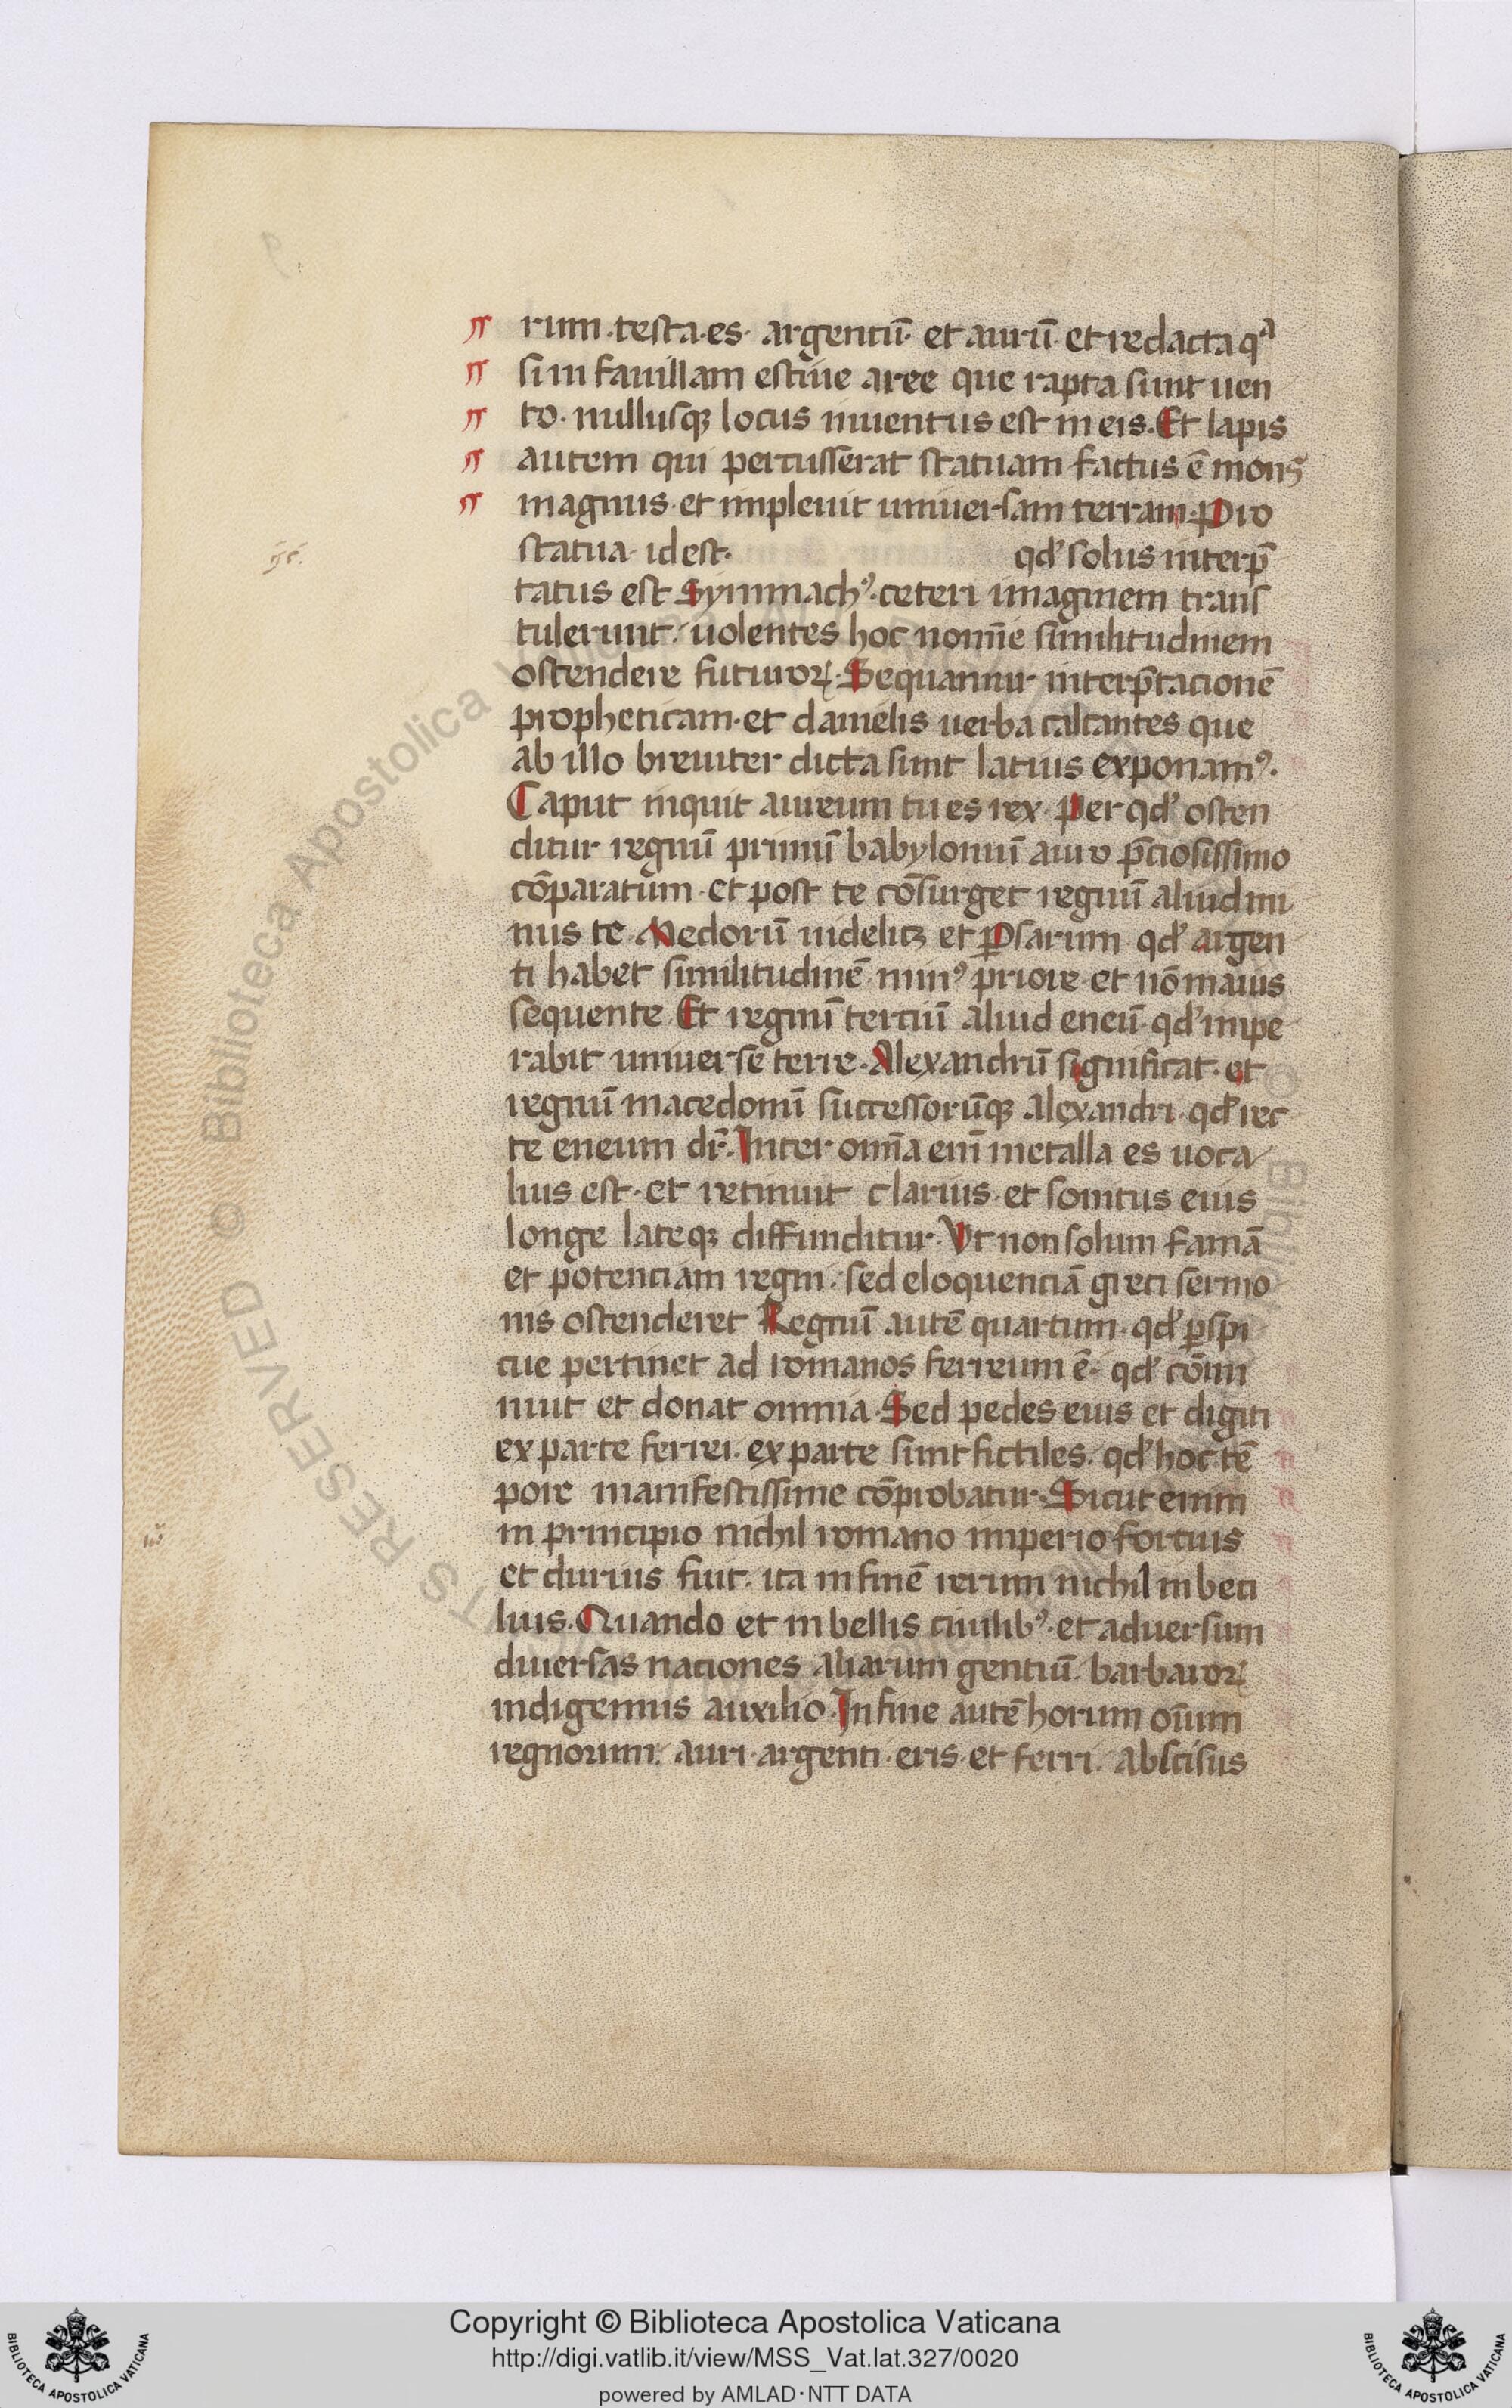 rum. testa. es. argentū. et aurū. et redacta qᵃ
si in fauillam estiue aree que rapta sunt uen
to. nullusqꝫ locus inuentus est in eis. Et lapis
autem qui percusserat statuam factus ē mons
magnus. et impleuit uniuersam terram. Pro
statua. id est. qd' solus interp̄
tatus est Symmachꝰ. ceteri imaginem trans
tulerunt. uolentes hoc nomīe similitudinem
ostendere futuroꝝ. Sequamur interp̄tacionē
propheticam. et danielis uerba calcantes que
ab illo breuiter dicta sunt latius exponamꝰ.
Caput inquit aureum tu es rex. Per qd' osten
ditur regnū primū babylonium auro p̄ciosissimo
cōparatum. et post te cōsurget regnū aliud mi
nus te. Medorū uidelicꝫ et Ꝑsarum. qd' argen
ti habet similitudinē. minꝰ priore. et nō maius
sequente. Et regnū tertiū aliud eneū. qd' impe
rabit uniuerse terre. Alexandrū significat. et
regnū macedonū successorūqꝫ alexandri. qd' rec
te eneum dr̄. Inter omīa enī metalla es uoca
lius est. et retinnit clarius. et sonitus eius
longe lateqꝫ diffunditur. Vt non solum famā
et potenciam regni. sed eloquenciā greci sermo
nis ostenderet Regnū autē quartum. qd' ꝑsp̄i
cue pertinet ad romanos ferreum ē. qd' cōmi
nuit et donat omnia. Sed pedes eius et digiti
ex parte ferrei. ex parte sunt fictiles. qd' hoc tē
pore manifestissime cōprobatur. Sicut enim
in principio nichil romano imperio fortius
et durius fuit. ita in finē rerum nichil inbeci
lius. Quando et in bellis ciuilibꝰ. et aduersum
diuersas naciones aliarum gentiū. barbaroꝝ
indigemus auxilio. In fine autē horum oīum
regnorum. auri. argenti. eris. et ferri. abscisus
Copyright © Biblioteca Apostolica Vaticana
http://digi.vatlib.it/view/MSS_Vat.lat.327/0020
powered by AMLAD·NTT DATA
BIBLIOTECA APOSTOLICA VATICANA
BIBLIOTECA APOSTOLICA VATICANA